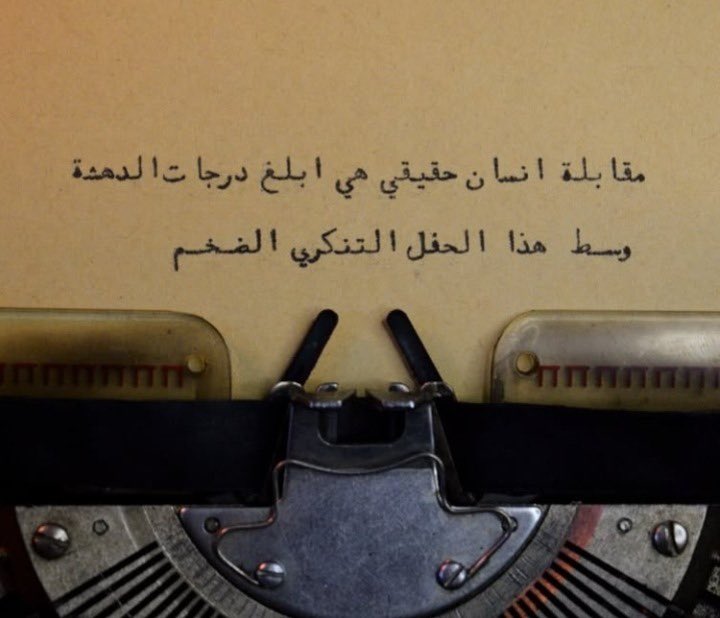 مقابلة انسان حقيقي هي ابلغ درجات الدهشة
وسط هذا الحفل التنكري الضخم